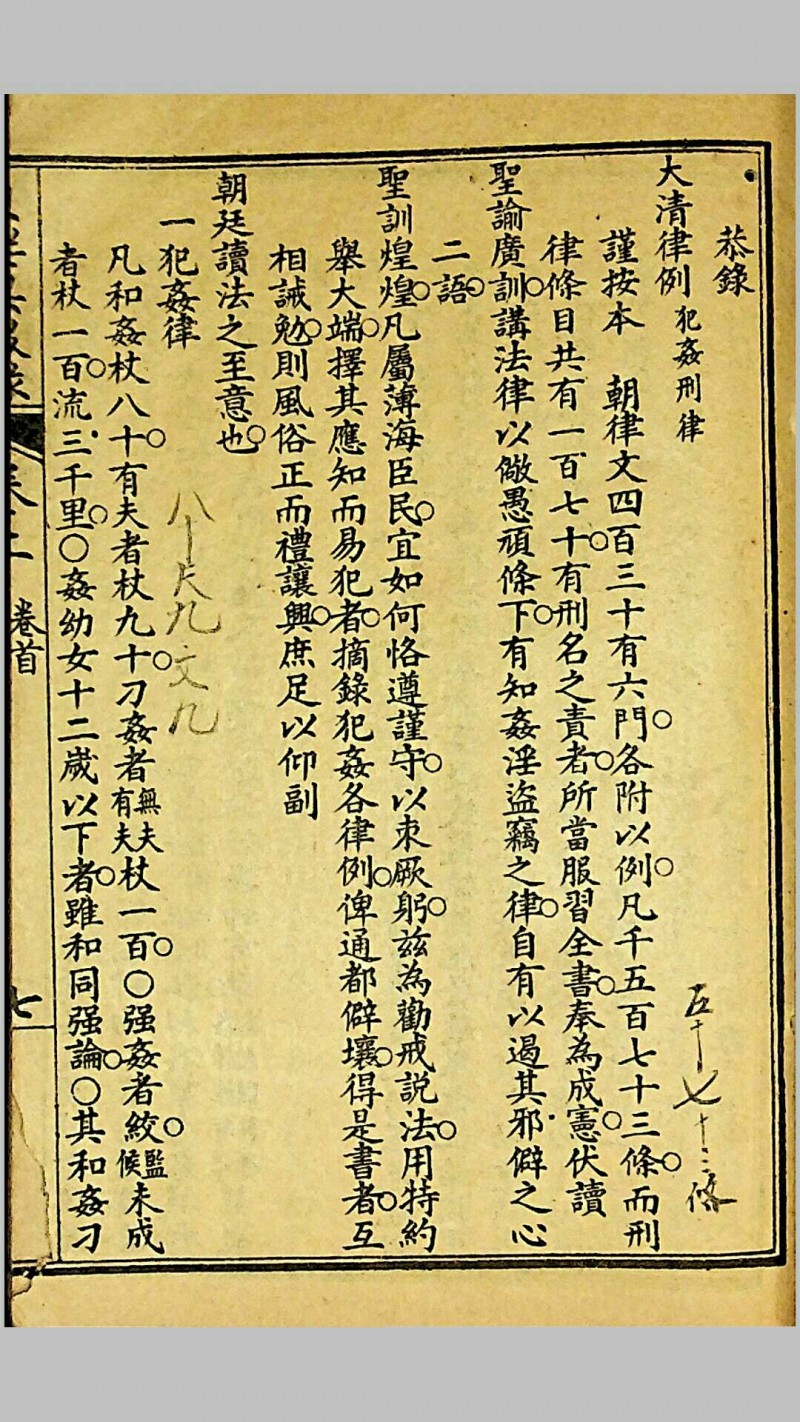 恭錄
大清律例 犯姦刑律
謹按本 朝律文四百三十有六門○各附以例○凡千五百七十三條○而刑
律條目共有一百七十○有刑名之責者○所當服習全書○奉為成憲○伏讀
聖諭廣訓○講法律以儆愚頑條下○有知姦淫盜竊之律○自有以遏其邪僻之心
二語○
聖訓煌煌○凡屬薄海臣民○宜如何恪遵謹守○以束厥躬○茲為勸戒說法○用特約
舉大端○擇其應知而易犯者○摘錄犯姦各律例○俾通都僻壤○得是書者○互
相誡勉○則風俗正而禮讓興○庶足以仰副
朝廷讀法之至意也○
一犯姦律
凡和姦杖八十○有夫者杖九十○刁姦者無夫有夫杖一百○○强姦者絞○監候未成
者杖一百○流三千里○○姦幼女十二歲以下者○雖和同强論○○其和姦刁
卷首
七